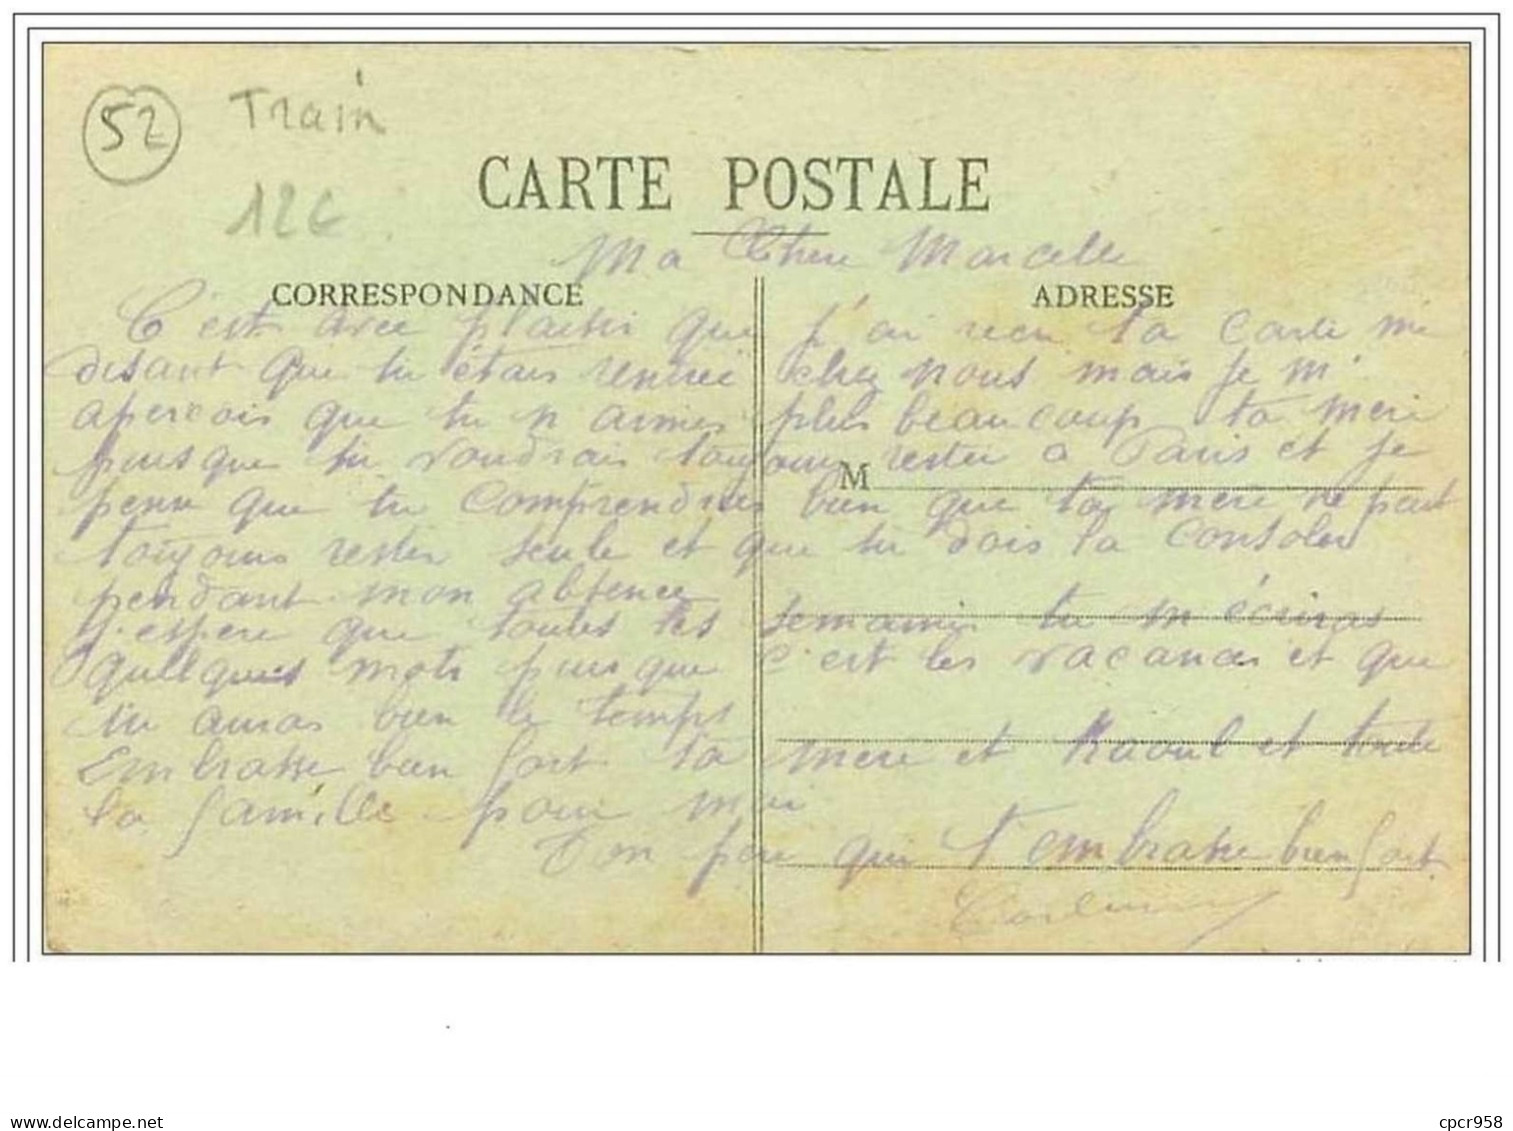 52 Train
12€
CARTE POSTALE
Ma Chere Marcelle
CORRESPONDANCE ADRESSE
C'est avec plaisir que j'ai recu ta carte me
disant que tu étais rentrée chez nous mais je m'
apercois que tu n aimes plus beaucoup ta mere
puisque tu voudrais toujours rester a Paris et je
M
pense que tu comprendras bien que ta mere ne peut
toujours rester seule et que tu dois la consoler
pendant mon absence
J'espere que toutes les semaines tu m'écriras
quelques mots puisque c'est les vacances et que
tu auras bien le temps
Embrasse bien fort ta mere et Raoul et toute
la famille pour moi
Ton pere qui t'embrasse bien fort
www.delcampe.net
cpcr958